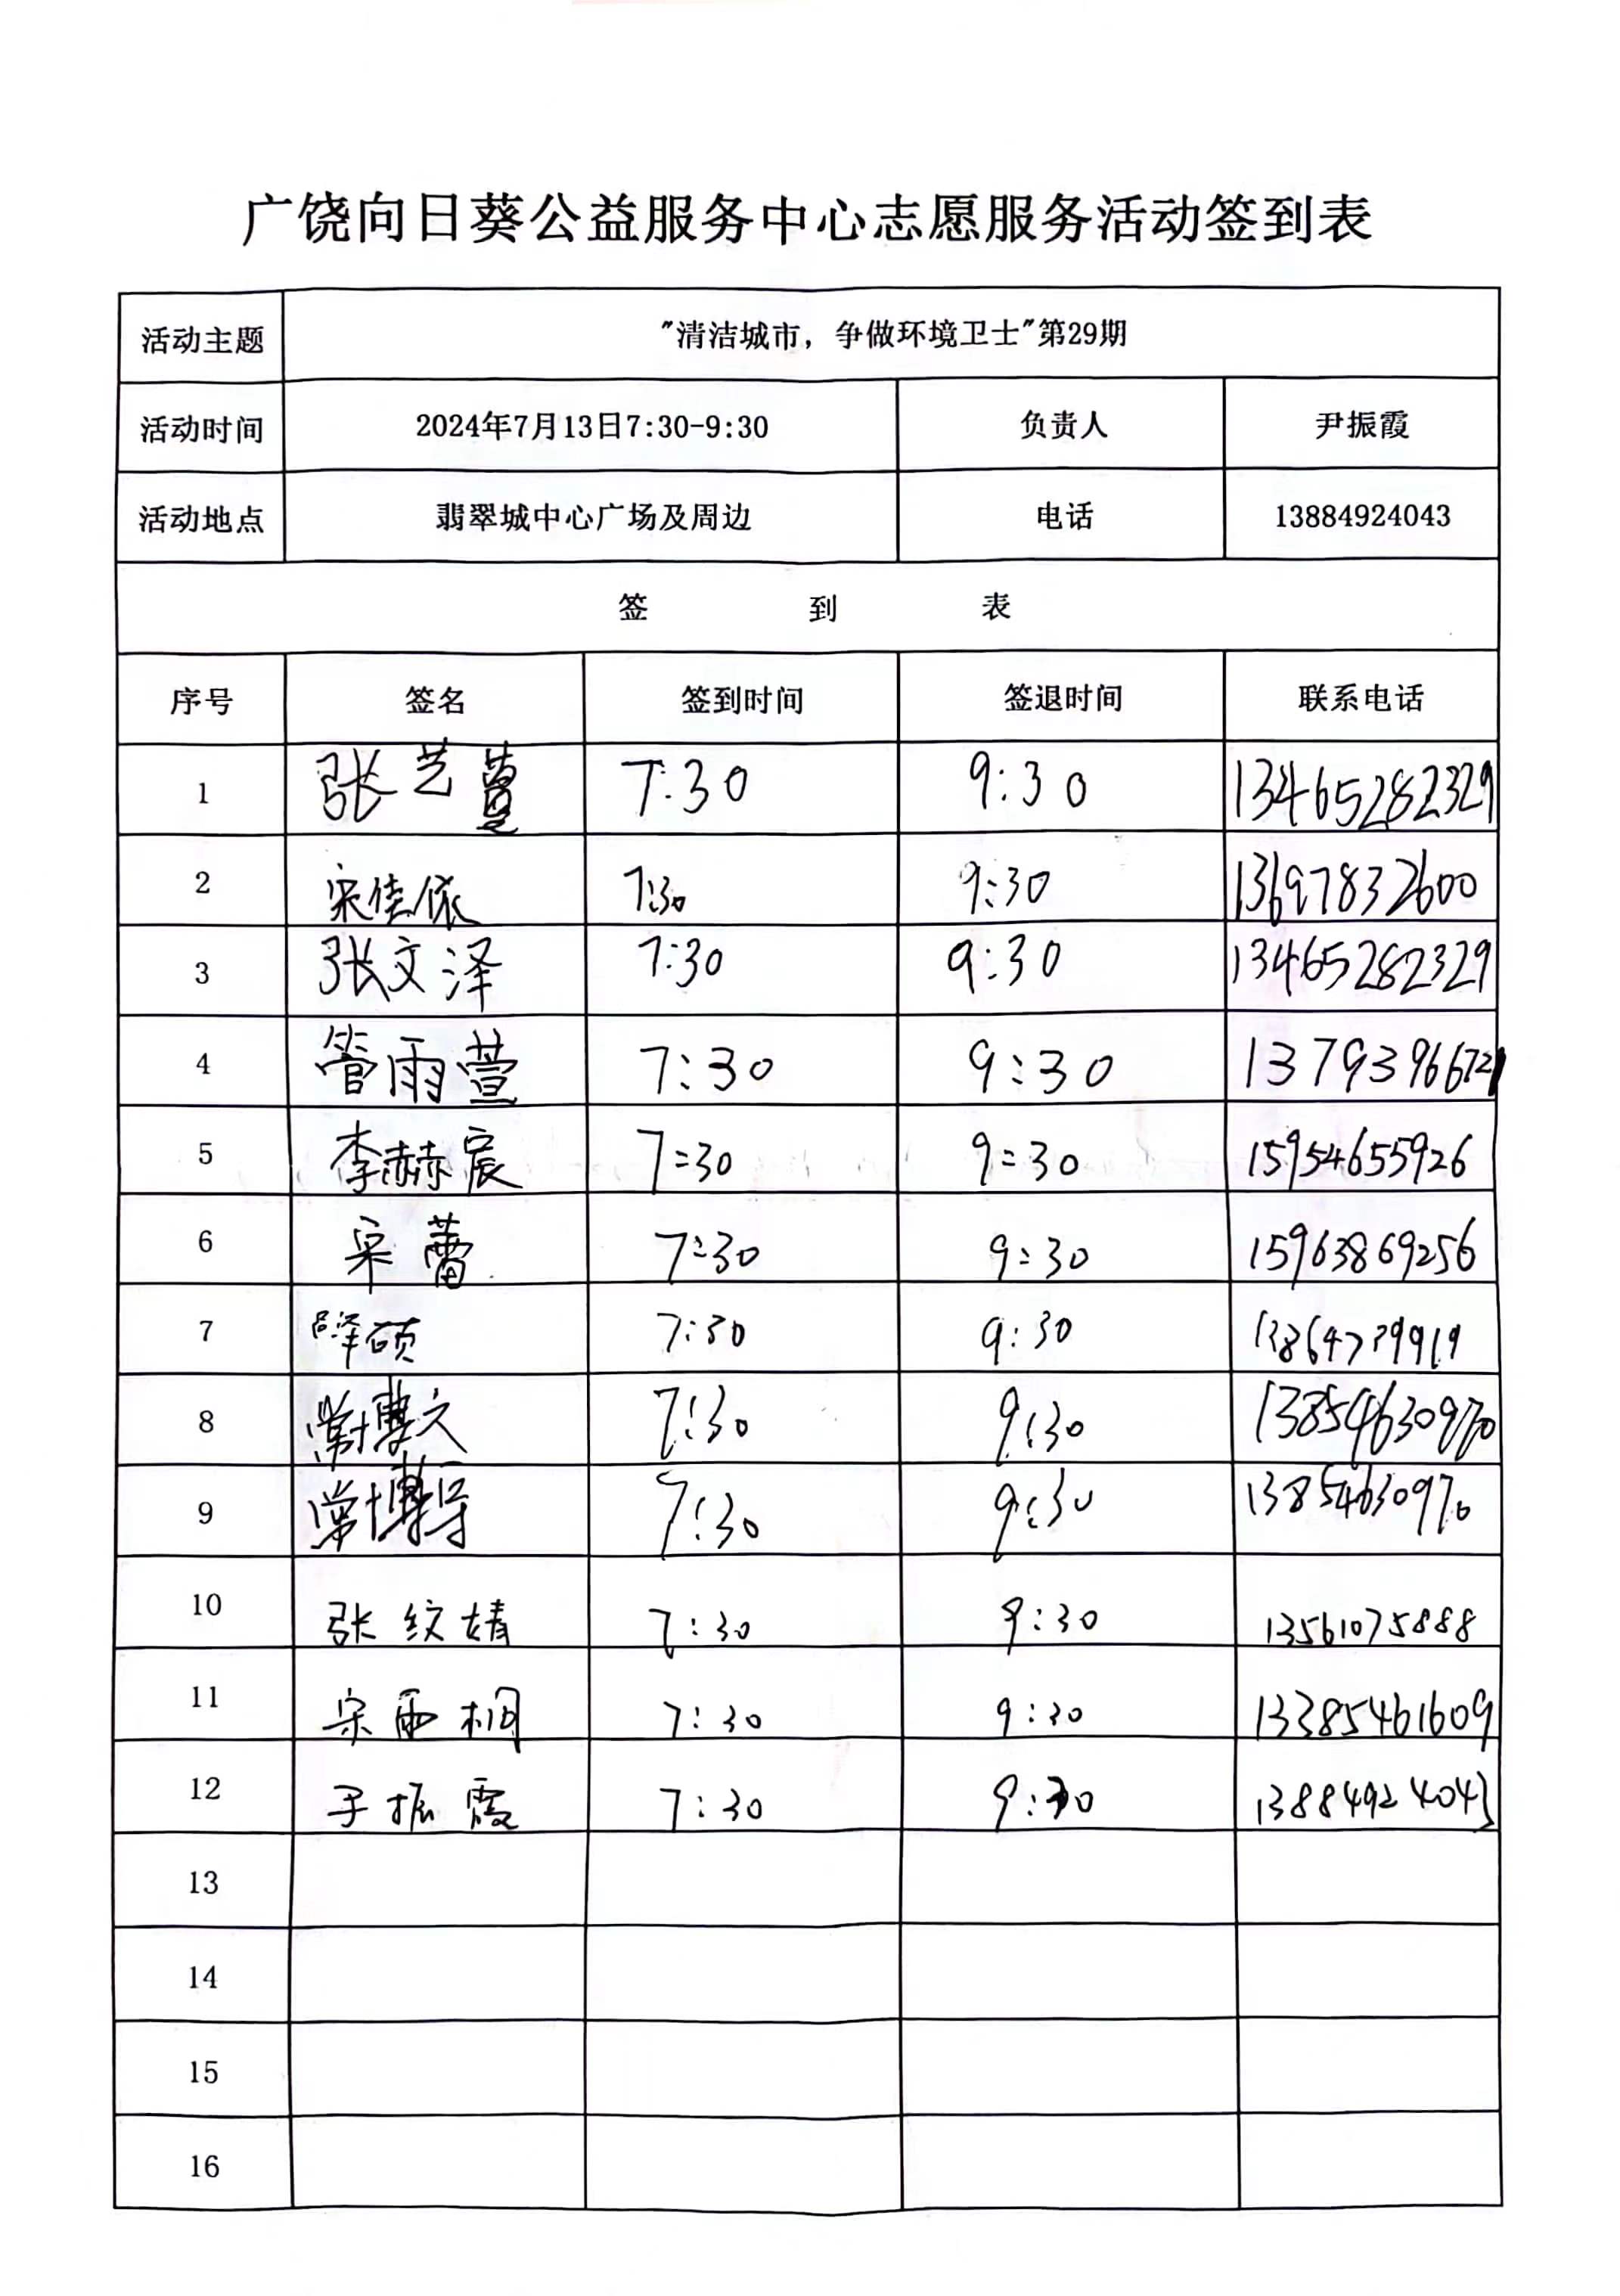 广饶向日葵公益服务中心志愿服务活动签到表
活动主题 "清洁城市，争做环境卫士"第29期
活动时间 2024年7月13日7:30-9:30 负责人 尹振霞
活动地点 翡翠城中心广场及周边 电话 13884924043
签 到 表
序号 签名 签到时间 签退时间 联系电话
1 张艺萱 7:30 9:30 13465282329
2 宋佳依 7:30 9:30 13697832600
3 张文泽 7:30 9:30 13465282329
4 管雨萱 7:30 9:30
5 李赫宸 7:30 9:30 15954655926
6 宋蕾 7:30 9:30 15963869256
7 吕泽硕 7:30 9:30
8 常博文 7:30 9:30 13854630970
9 常博 7:30 9:30 13854630970
10 张纹婧 7:30 9:30 13561075888
11 宋雨桐 7:30 9:30 13385461609
12 尹振霞 7:30 9:30 13884924043
13
14
15
16